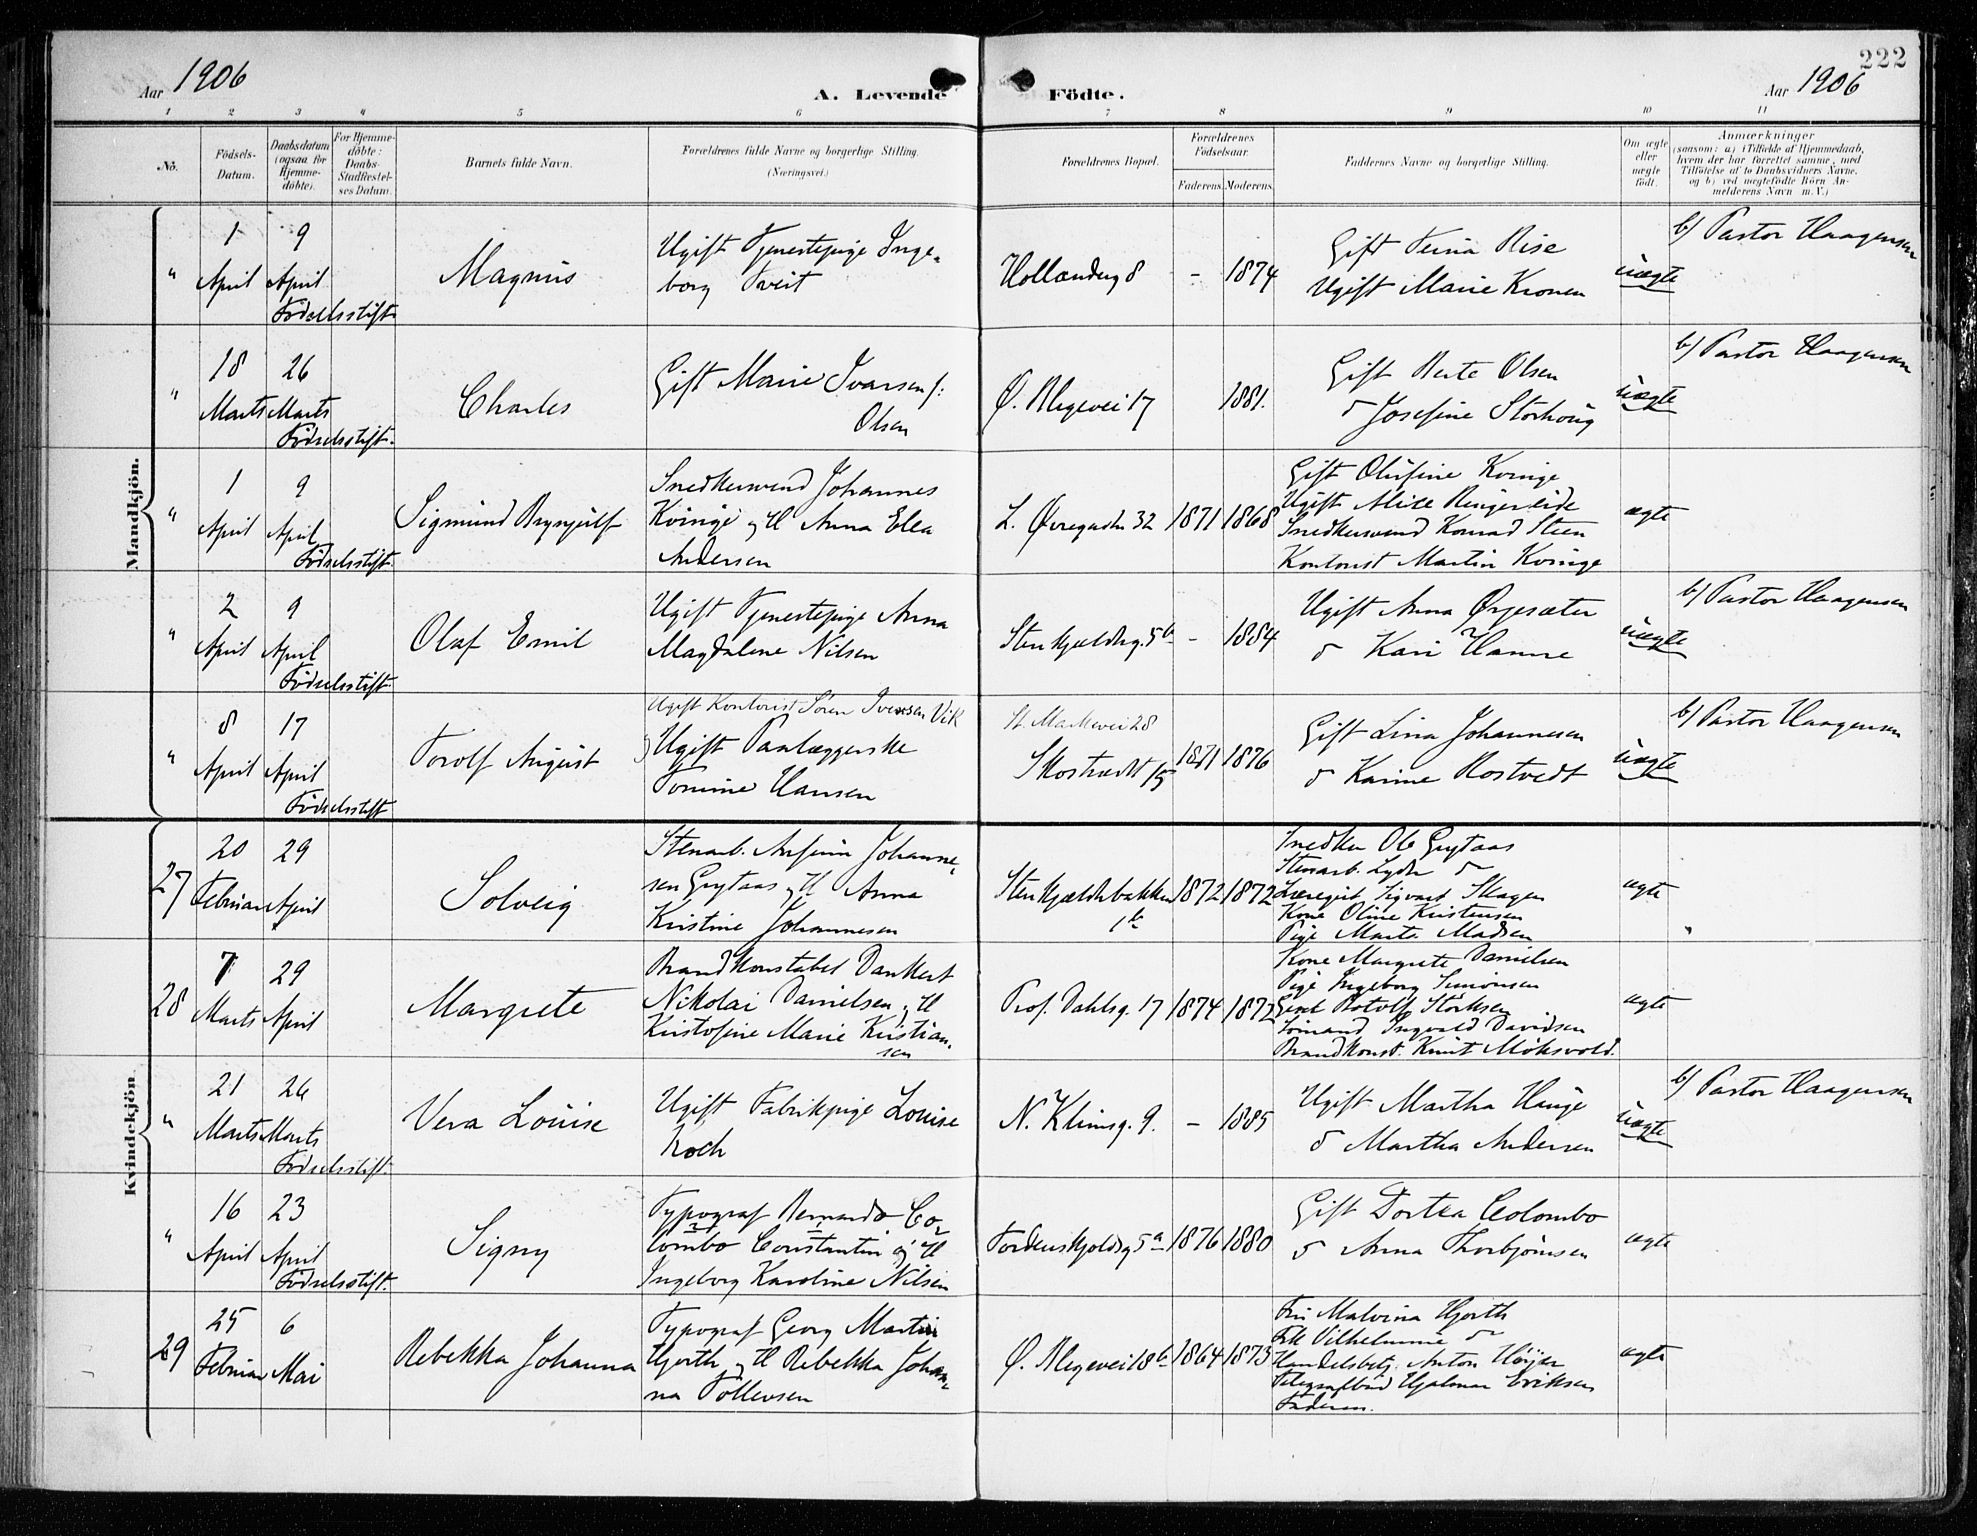 222
Aar 1906
A. Levende Födte.
Aar 1906
1 2 3 4 5 6 7 8 9 10 11
No.
Födsels-Datum.
Daabsdatum (ogsaa for Hjemme-döbte).
For Hjemme-döbte: Daabs-Stadfæstel-ses Datum.
Barnets fulde Navn.
Forældrenes fulde Navne og borgerlige Stilling. (Næringsvei.)
Forældrenes Bopæl.
Forældrenes Födselsaar.
Faderens. Moderens.
Faddernes Navne og borgerlige Stilling.
Om ægte eller uægte födt.
Anmærkninger
(saasom: a) i Tilfælde af Hjemmedaab,
hvem der har forrettet samme, med
Tilföielse af to Daabsvidners Navne,
og b) ved uægtefödte Börn An-
melderens Navn m. V.)
Mandkjön.
" 1 April 9 April Fødselsstift.
Magnus
Ugift Tjenestepige Inge-
borg Tveit
Hollænderg 8 - 1874
Gift Teina Rise
Ugift Marie Kronen
uægte
b) Pastor Haagensen
" 18 Marts 26 Marts Fødselsstift.
Charles
Gift Marie Ivarsen f:
Olsen
Ø. Blegevei 17 1881.
Gift Berte Olsen
o Josefine Storhoug
uægte
b) Pastor Haagensen
" 1 April 9 April Fødselsstift.
Sigmund Brynjulf
Snedkersvend Johannes
Kvinge og H. Anna Elea
Andersen
L. Øvregaden 32 1871 1868
Gift Olufine Kvinge
Ugift Alise Ringereide
Snedkersvend Konrad Steen
Kontorist Martin Kvinge
ægte
" 2 April 9 April Fødselsstift.
Olaf Emil
Ugift Tjenestepige Anna
Magdalene Nilsen
Stenkjælderg. 5 b - 1884
Ugift Anna Ørjesæter
o Kari Hamre
uægte
b) Pastor Haagensen
" 8 April 17 April Fødselsstift.
Torolf August
Ugift Kontorist Sören Iversen Vik
Ugift Paalæggerske
Tomine Hansen
St. Markevei 28
Skostrædet 15 1871 1876
Gift Lina Johannesen
o Karine Rostvedt
uægte
b) Pastor Haagensen
Kvindekjön
27 20 Februar 29 April
Solveig
Stenarb. Anfinn Johanne-
sen Grytaas og H. Anna
Kristine Johannesen
Stenkjælderbakken 1 b 1872 1872
Snedker Ole Grytaas
Stenarb. Lyder o
Læregut Sigvart Skagen
Kone Oline Kristensen
Pige Marta Madsen
ægte
28 7 Marts 29 April
Margrete
Brandkonstabel Dankert
Nikolai Danielsen og H.
Kristofine Marie Kristian-
sen
Prof. Dahlsg. 17 1874 1872
Kone Margrete Danielsen
Pige Ingeborg Simonsen
Gent Rotolf Storksen
Sömand Ingvald Davidsen
Brandkonst. Knut Moksvold.
ægte
" 21 Marts 26 Marts Fødselsstift.
Vera Louise
Ugift Fabrikpige Louise
Koch
N. Klimsg. 9. - 1885
Ugift Martha Hauge
o Martha Andersen
uægte
b) Pastor Haagensen
" 16 April 23 April Fødselsstift.
Signy
Typograf Bernardo Co-
lombo Constantin og H.
Ingeborg Karoline Nilsen
Tordenskjoldsg 5 a 1876 1880
Gift Dortea Colombo
o Anna Thorbjørnsen
ægte
29 25 Februar 6 Mai
Rebekka Johanna
Typograf Georg Martin
Hjorth og H. Rebekka Johan-
na Tollevsen
Ø. Blegevei 18 b 1864 1873
Fru Malvina Hjorth
Frk Vilhelmine o
Handelsbetj. Anton Höijer
Telegrafbud Hjalmar Eriksen
Faderen.
ægte